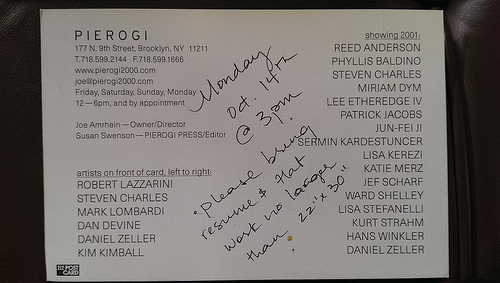 PIEROGI
177 N. 9th Street, Brooklyn, NY 11211
T.718.599.2144 F.718.599.1666
www.pierogi2000.com
joe@pierogi2000.com
Friday, Saturday, Sunday, Monday
12—6pm, and by appointment
Joe Amrhein—Owner/Director
Susan Swenson—PIEROGI PRESS/Editor
artists on front of card, left to right:
ROBERT LAZZARINI
STEVEN CHARLES
MARK LOMBARDI
DAN DEVINE
DANIEL ZELLER
KIM KIMBALL
Monday
Oct. 14th
@ 3pm
*Please bring
resume & flat
work no larger
than 22"x 30"
showing 2001:
REED ANDERSON
PHYLLIS BALDINO
STEVEN CHARLES
MIRIAM DYM
LEE ETHEREDGE IV
PATRICK JACOBS
JUN-FEI JI
SERMIN KARDESTUNCER
LISA KEREZI
KATIE MERZ
JEF SCHARF
WARD SHELLEY
LISA STEFANELLI
KURT STRAHM
HANS WINKLER
DANIEL ZELLER
POST
CARD